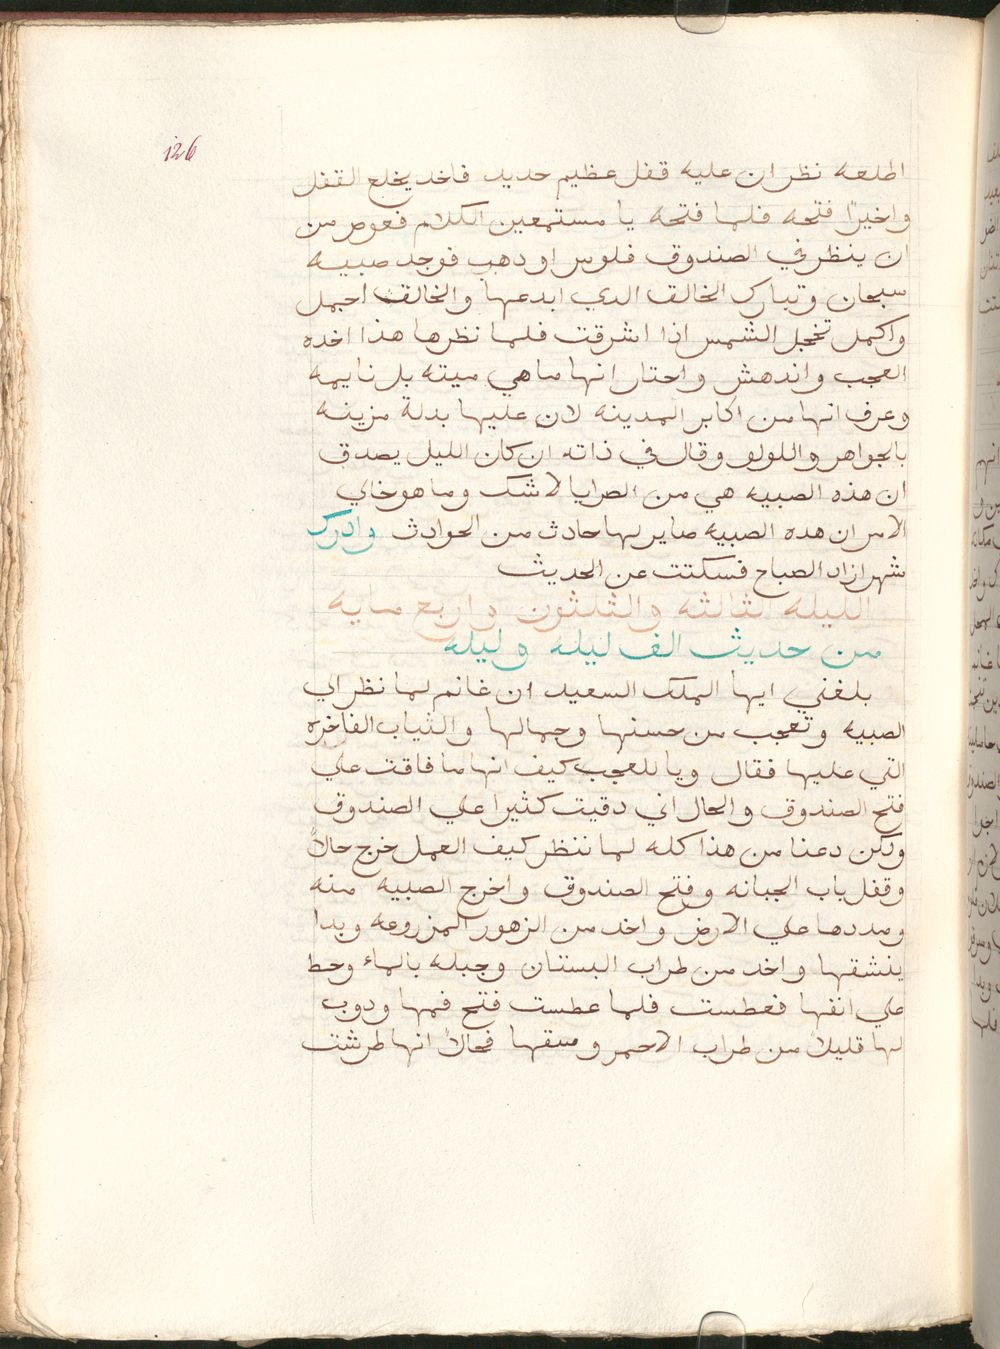 126
اطلعه نظر ان عليه قفل عظيم حديد فاخد يخلع القفل
واخيرًا فتحه فلما فتحه يا مستمعين الكلام فعوص من
ان ينظر في الصندوق فلوس او دهب فوجد صبيه
سبحان وتبارك الخالق الدي ابدعها والخالق اجمل
واكمل تخجل الشمس اذا اشرقت فلما نظرها هذا اخده
العجب واندهش واحتار انها ما هي ميته بل نايمه
وعرف انها من اكابر المدينه لان عليها بدلة مزينه
بالجواهر واللولو وقال في ذاته ان كان الليل يصدق
ان هذه الصبيه هي من الصرايا لا شك وما هو خاي
الامر ان هده الصبيه صاير لها حادث من الحوادث وادرك
شهرازاد الصباح فسكتت عن الحديث
الليله الثالثه والثلثون واربع مايه
من حديث الف ليله وليله
بلغني ايها الملك السعيد ان غانم لما نظر الي
الصبيه وتعجب من حسنها وجمالها والثياب الفاخره
التي عليها فقال ويا للعجب كيف انها ما فاقت علي
فتح الصندوق والحال اني دقيت كثيرا علي الصندوق
ولكن دعنا من هذا كله لما ننظر كيف العمل خرج حالاً
وقفل باب الجبانه وفتح الصندوق واخرج الصبيه منه
ومددها علي الارض واخد من الزهور المزروعه وبدا
ينشقها واخد من طراب البستان وجبله بالماء وحط
علي انفها فعطست فلما عطست فتح فمها ودوب
لها قليلاً من طراب الاحمر وسقها فحالاً انها طرشت